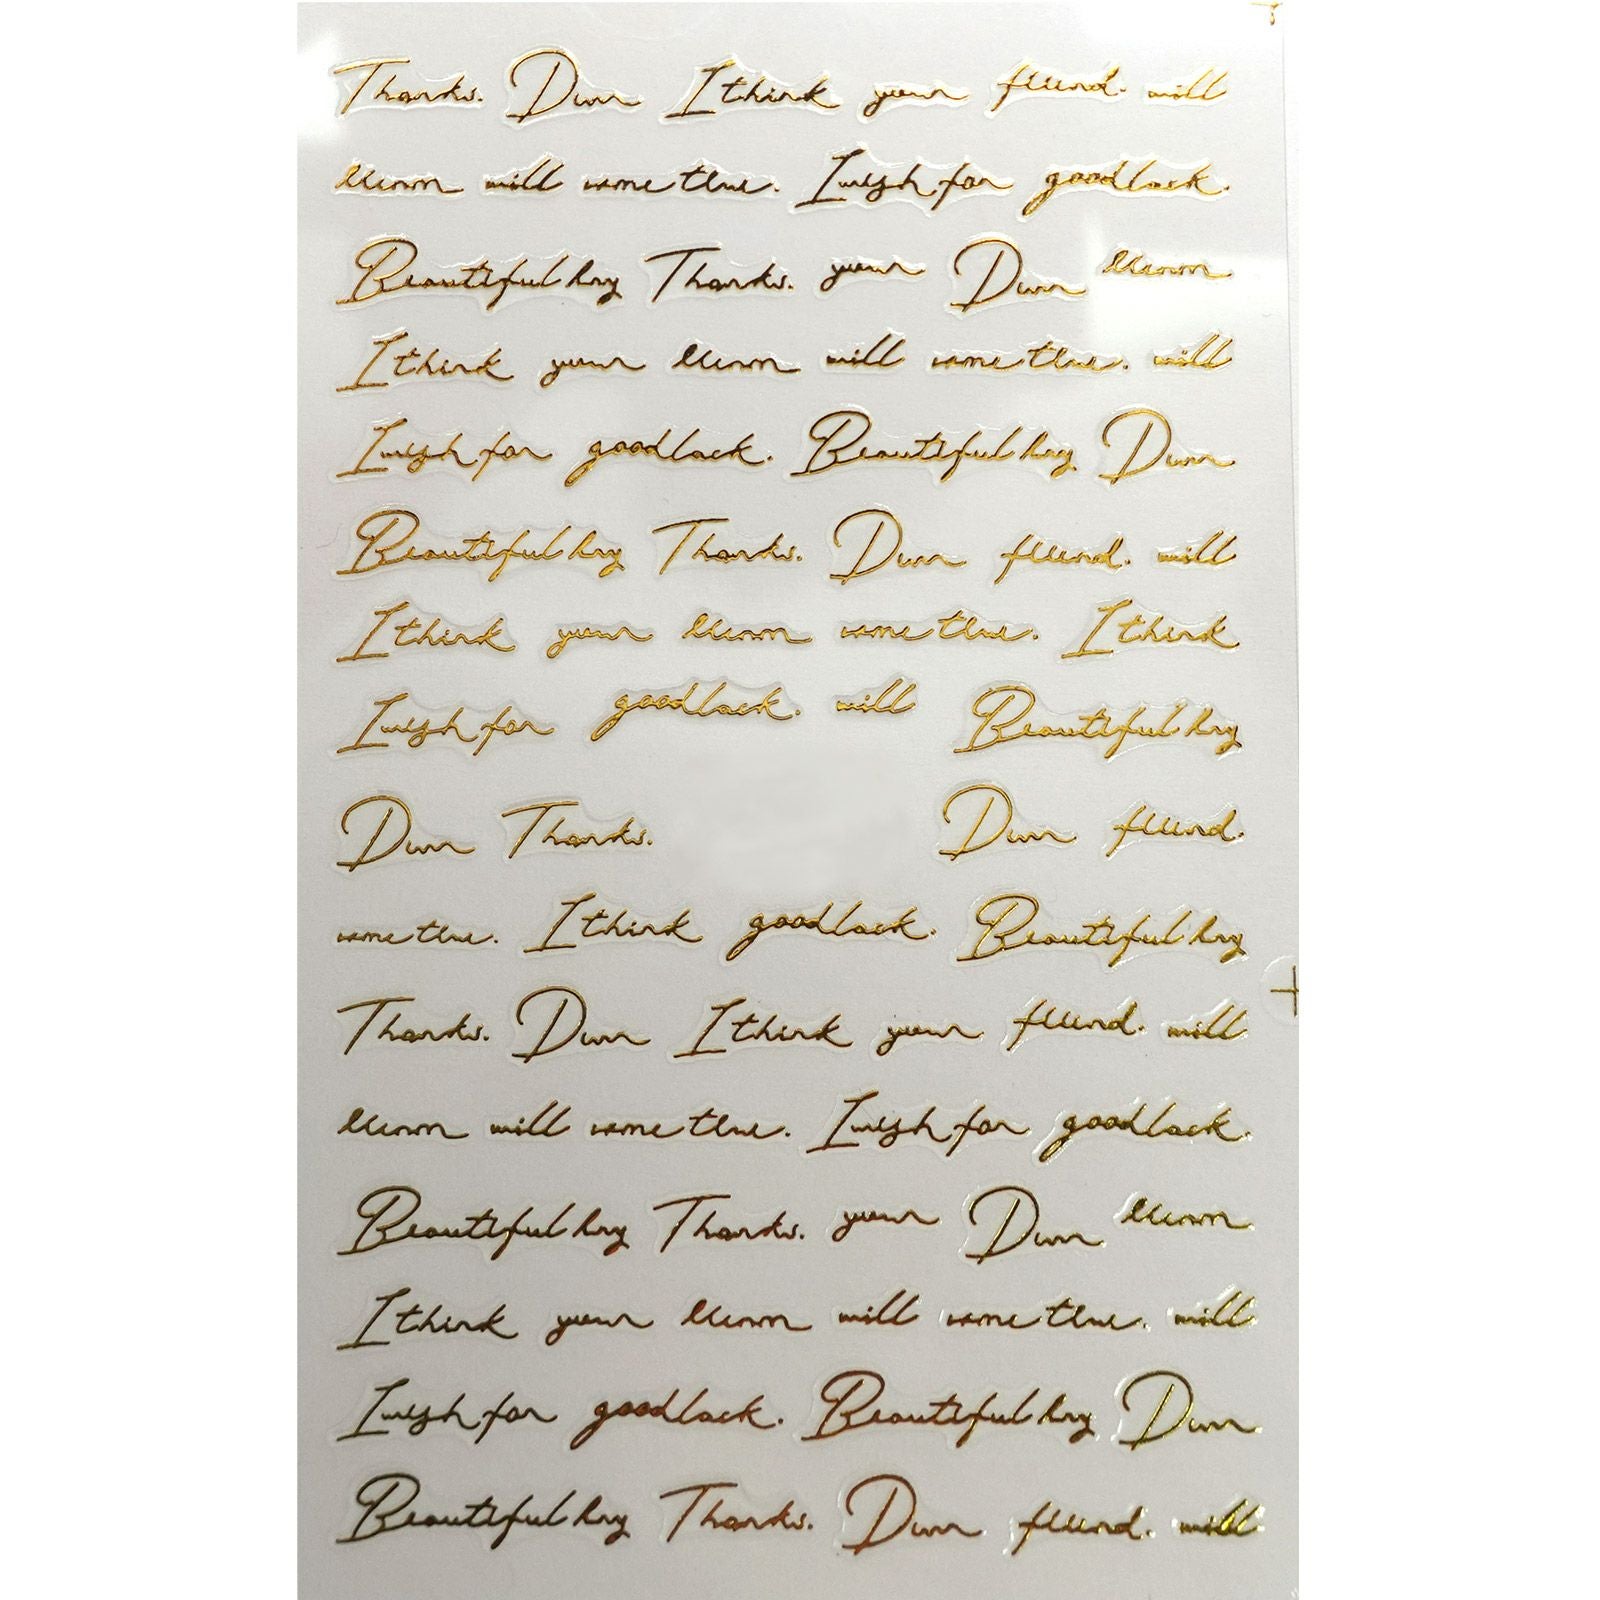 Thanks. Durr I think your flurnd. will
llurnrn will come tlue. I wish for good lack.
Beautiful hry Thanks. your Durr llurnrn
I think your llurnrn will come tlue. will
I wish for good lack. Beautiful hry Durr
Beautiful hry Thanks. Durr flurnd. will
I think your llurnrn come tlue. I think
I wish for good lack. will Beautiful hry
Durr Thanks. Durr flurnd.
come tlue. I think good lack. Beautiful hry
Thanks. Durr I think your flurnd. will
llurnrn will come tlue. I wish for good lack.
Beautiful hry Thanks. your Durr llurnrn
I think your llurnrn will come tlue. will
I wish for good lack. Beautiful hry Durr
Beautiful hry Thanks. Durr flurnd. will